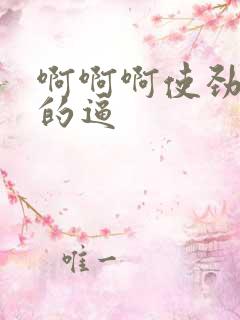 啊啊啊使劲
的逼
唯一